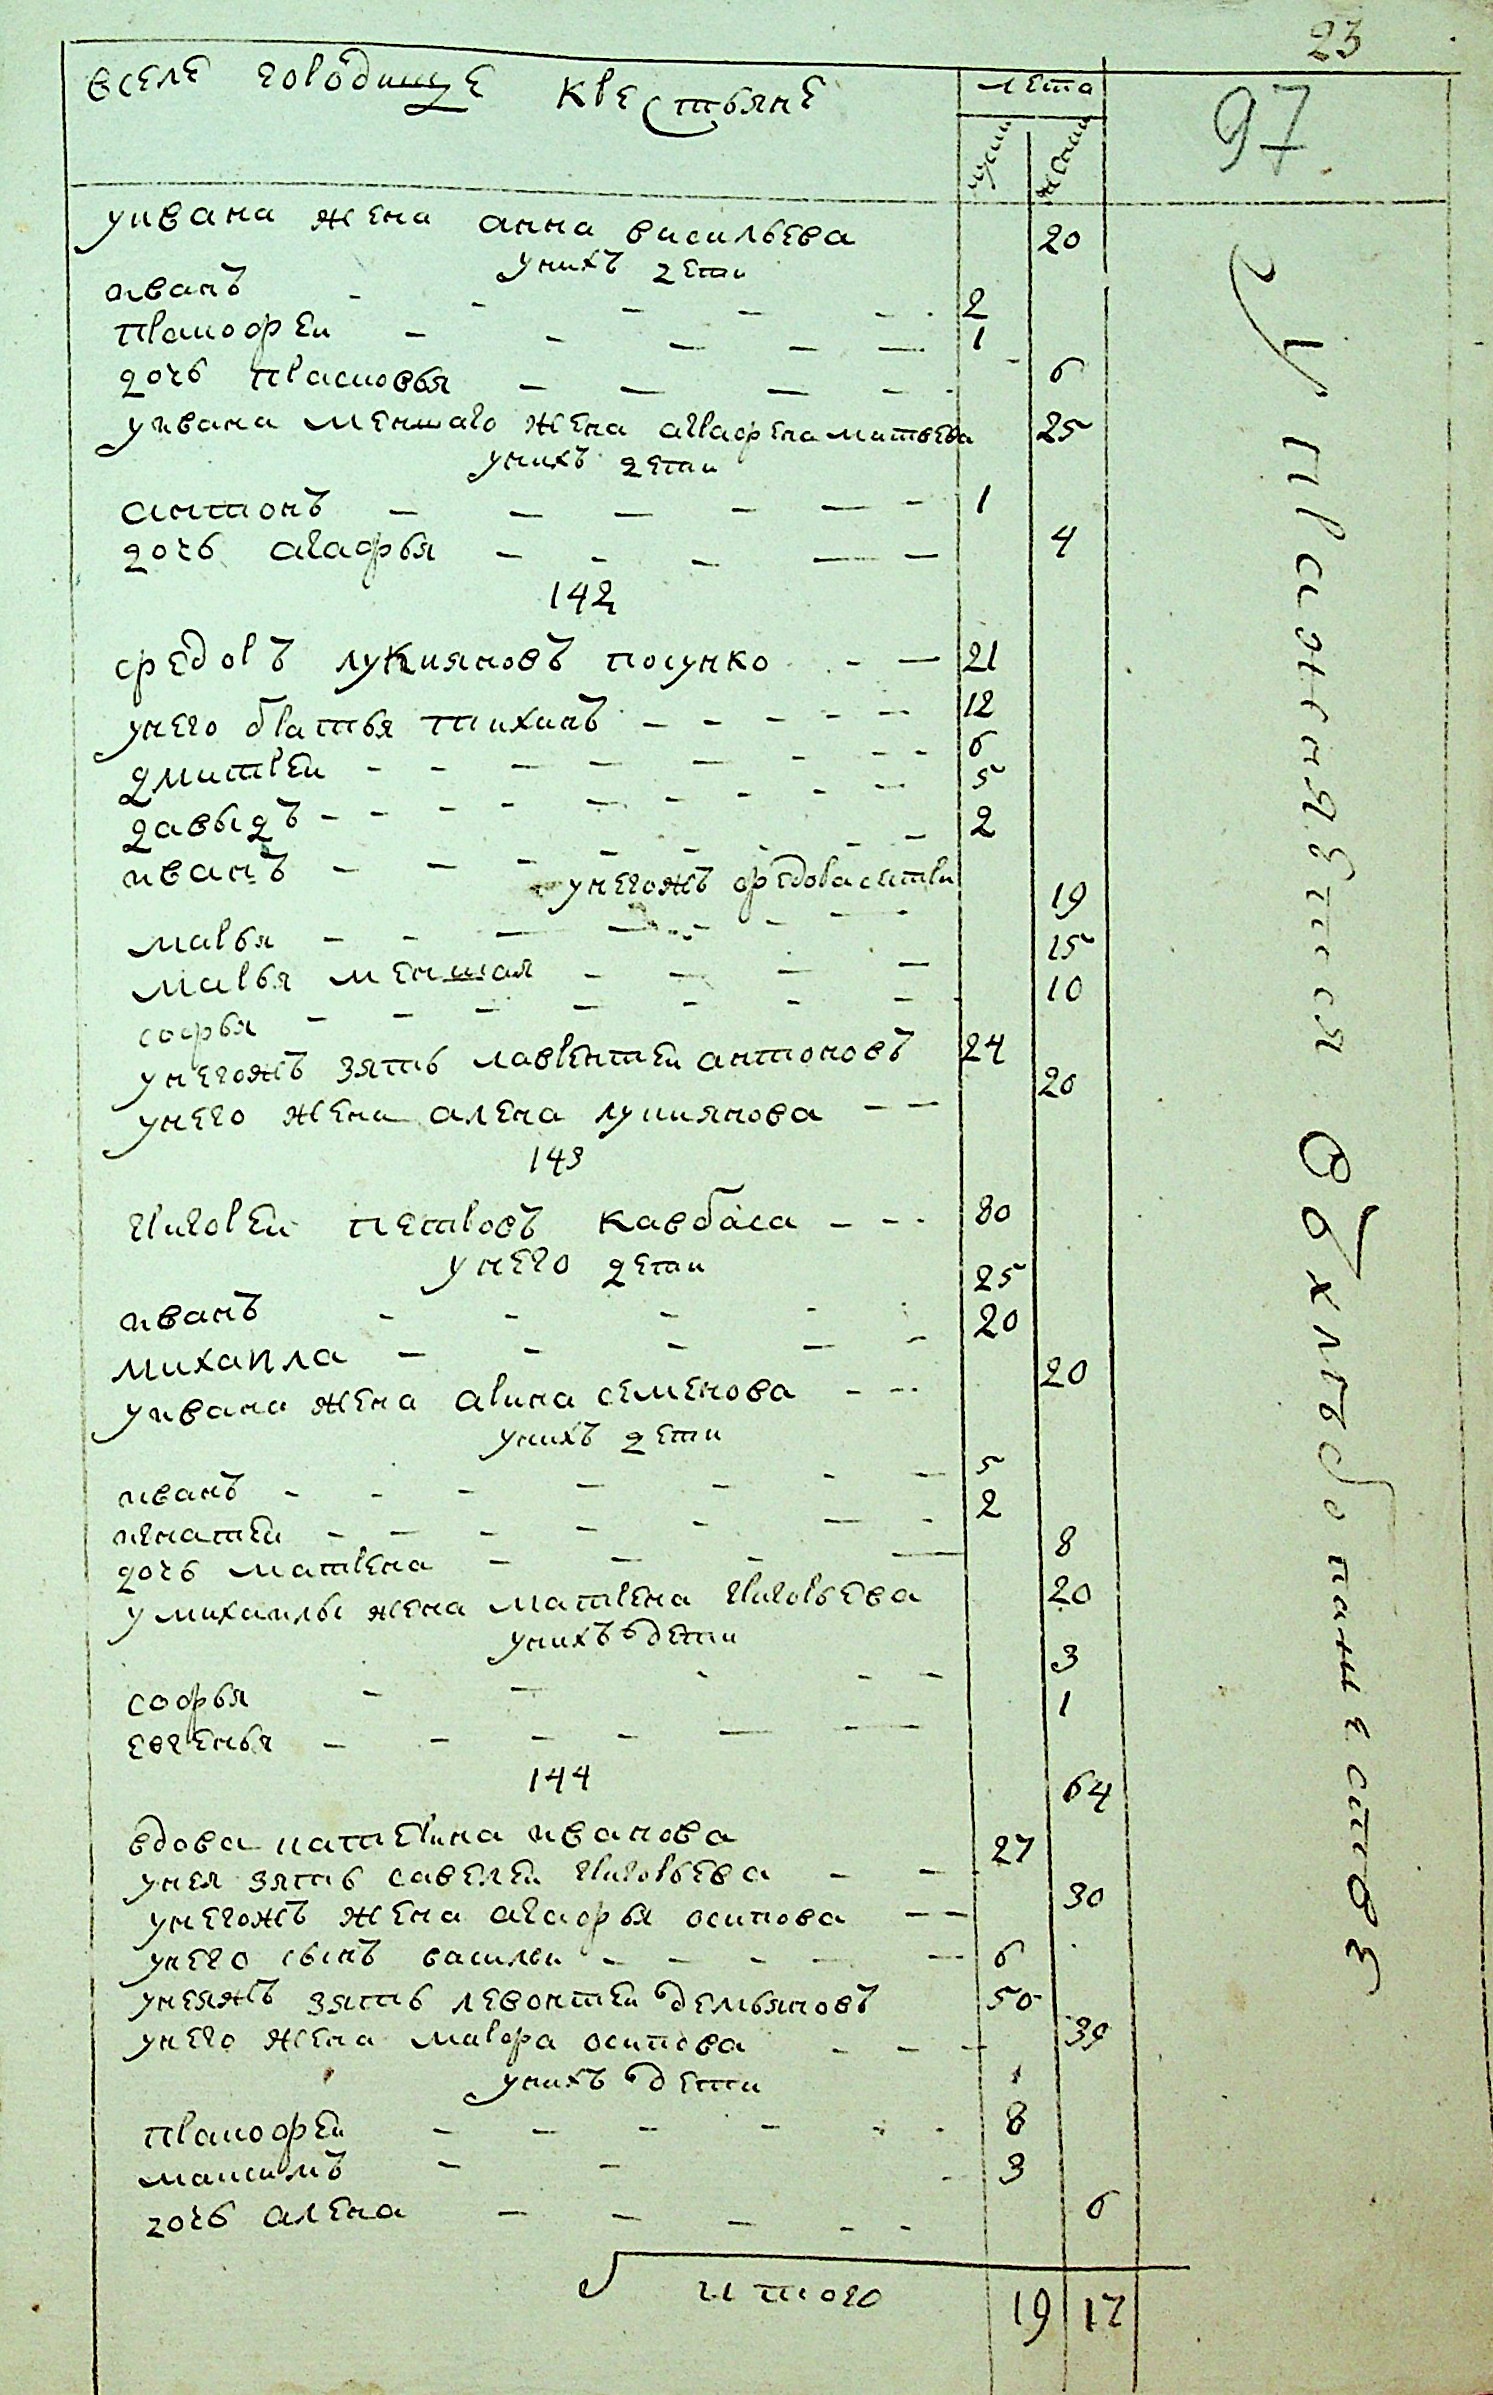 23
97
вселе городище крестьяне
лета
муски
женски
уивана жена анна васильева 20
унихъ дети
иванъ 2
тимофеи 1
дочь прасковья 6
уивана меншаго жена аграфена матвева 25
унихъ дети
антонъ 1
дочь агафья 4
142
федоръ лукияновъ 21
унего братья тихинъ 12
дмитреи 6
давыдъ 5
иванъ 2
унегожъ федора сестры
марья 19
марья меншая 15
софья 10
унегожъ зять лаврентеи антоновъ 24
унего жена алена лукиянова 20
143
григореи петровъ карбаса 80
унего дети
иванъ 25
михаила 20
уивана жена арина семенова 20
унихъ дети
иванъ 5
игнатеи 2
дочь матрена 8
умихаилы жена матрена григорьева 20
унихъ дети
софья 3
евгенья 1
144
вдова катерина иванова 64
унея зять савелеи григорьева 27
унегожъ жена агафья осипова 30
унего сынъ василеи 6
унеяжъ зять левонтеи демьяновъ 50
унего жена марфа осипова 39
унихъ дети
тимофеи 8
максимъ 3
дочь алена 6
итого 19 17